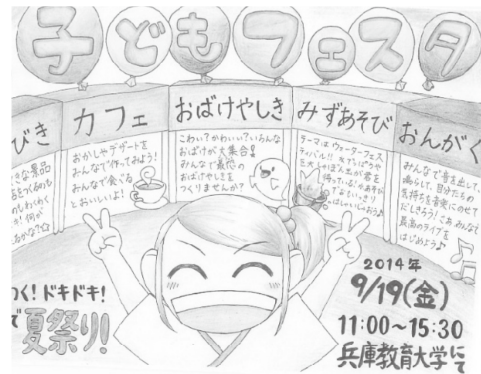 子どもフェスタ
びき
きな景品
カフェ
おかしやデザートを
みんなで作ってみよう!
みんなで食べる
とおいしいよ!
おばけやしき
こわい?かわいい?いろんな
おばけが大集合!
みんなで最恐の
おばけやしきを
つくりませんか?
みずあそび
テーマはウォーターフェス
ティバル!!
おんがく
みんなで音を出して、
鳴らして、自分たちの
気持ちを音楽にのせて
だしきろう!さあ、みんなで
最高のライブを
はじめよう♪
つく!ドキドキ!
で夏祭り!
2014年
9/19(金)
11:00~15:30
兵庫教育大学にて